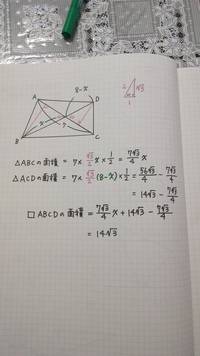 8-x
A
D
2 √3
1
x
7
B
C
△ABCの面積 = 7 × √3/2 x × 1/2 = 7√3/4 x
△ACDの面積 = 7 × √3/2 (8-x) × 1/2 = 56√3/4 - 7√3/4
= 14√3 - 7√3/4
□ABCDの面積 = 7√3/4 x + 14√3 - 7√3/4
= 14√3